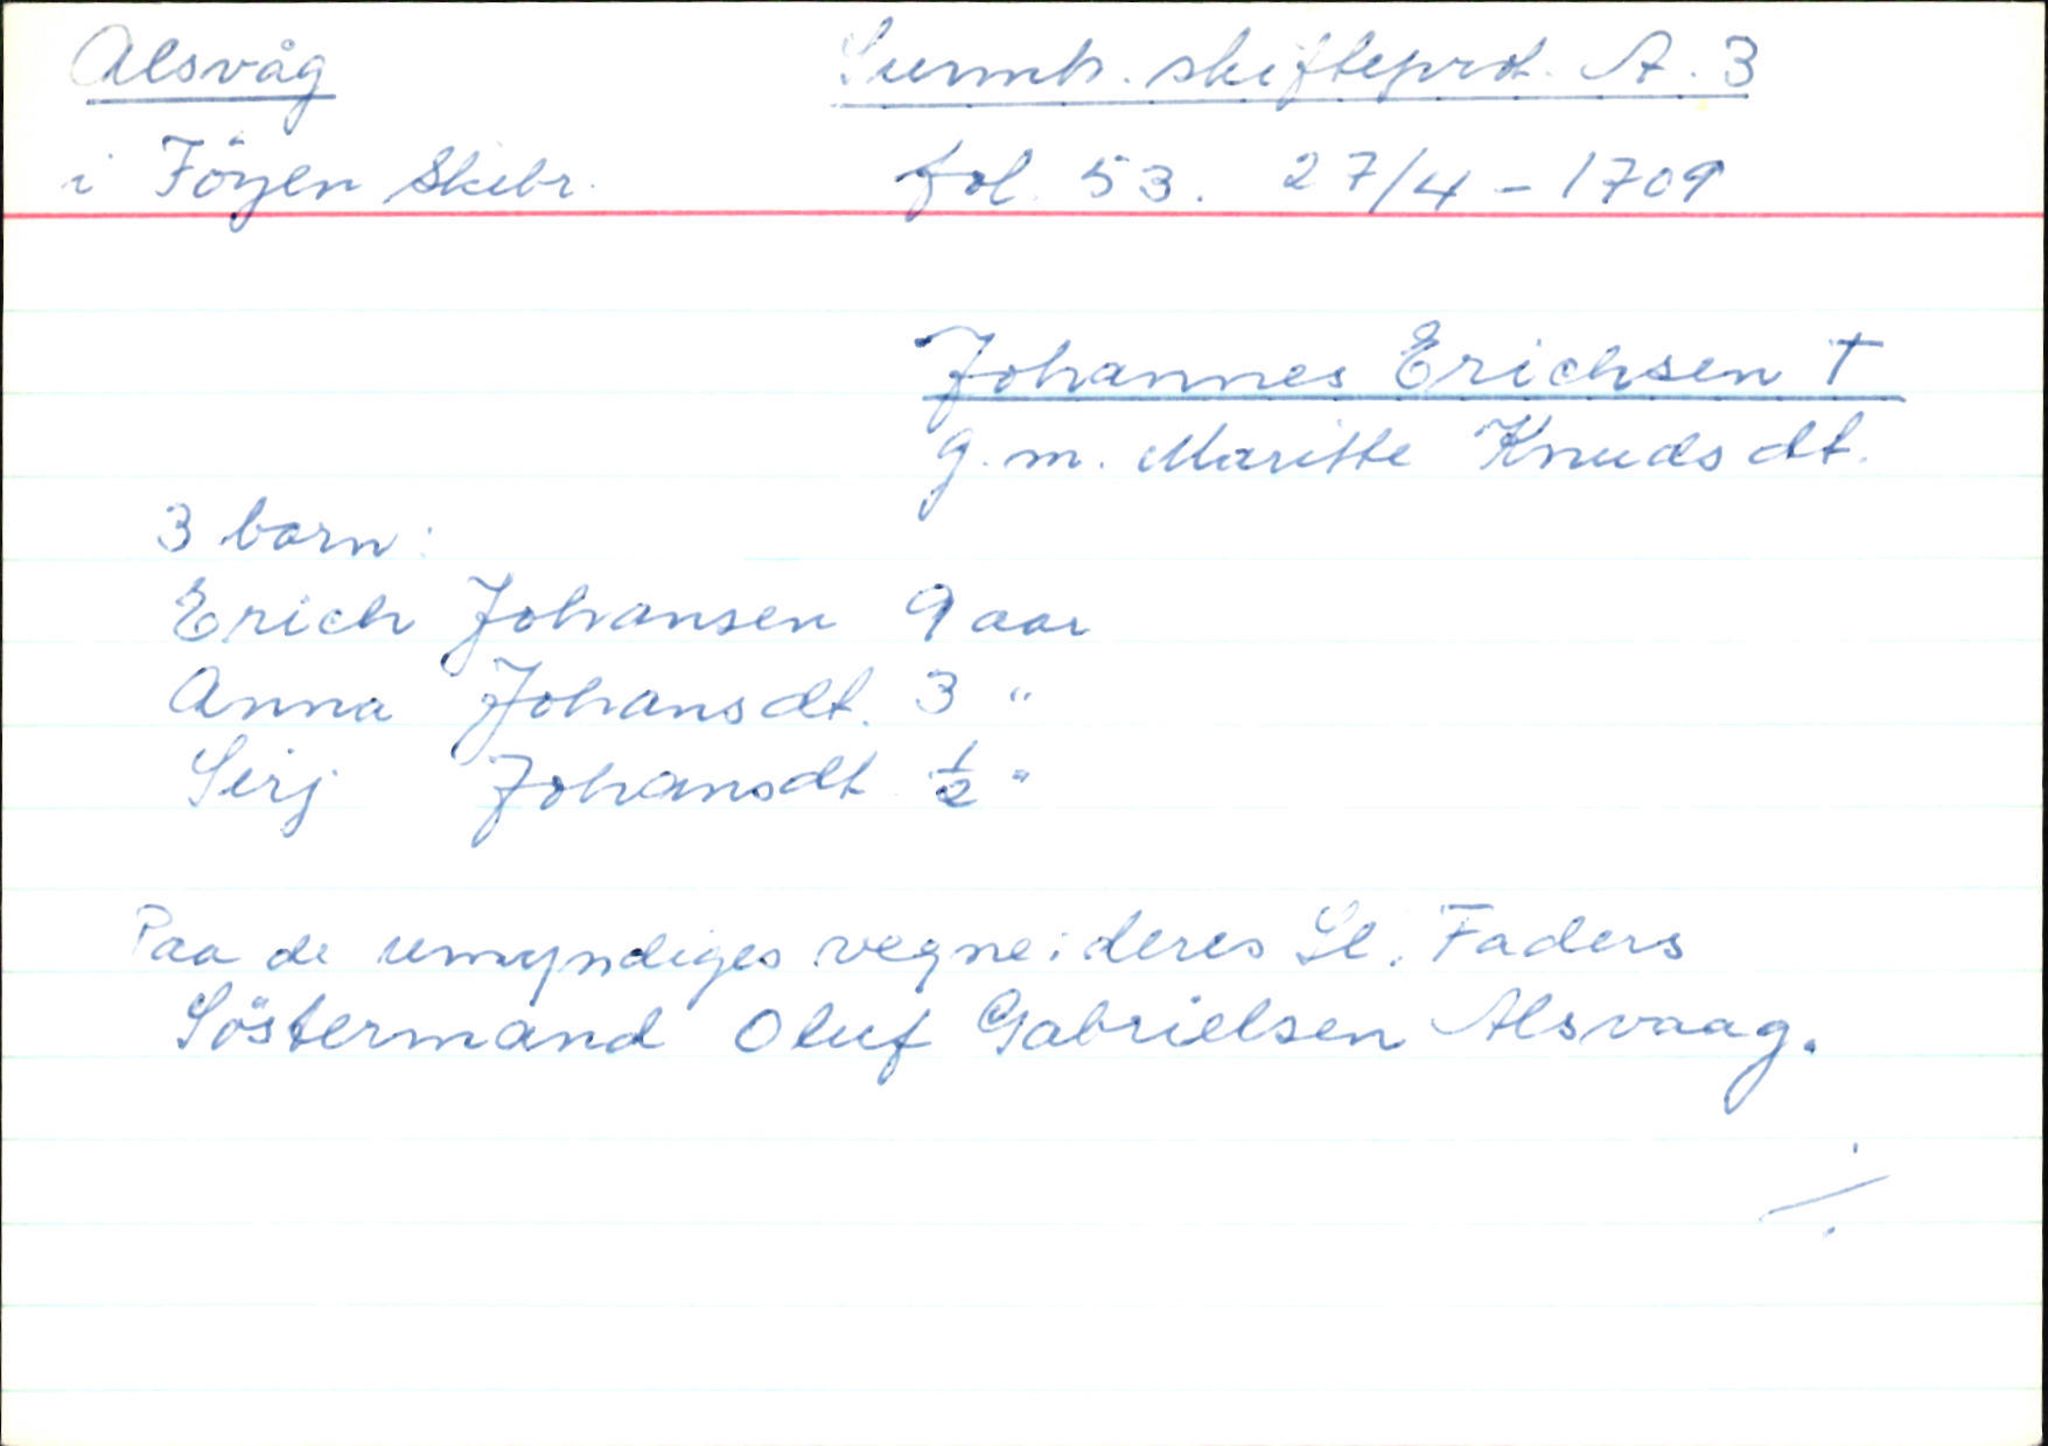 Alsvåg Sunnh. skifteprot. A. 3
i Föyen Skibr. fol. 53. 27/4 - 1709
Johannes Erichsen †
g. m. Maritte Knudsdt.
3 barn:
Erich Johansen 9 aar
Anna Johansdt. 3 "
Sirj Johansdt ½ "
Paa de umyndiges vegne: deres Sl. Faders
Söstermand Oluf Gabrielsen Alsvaag.
./.